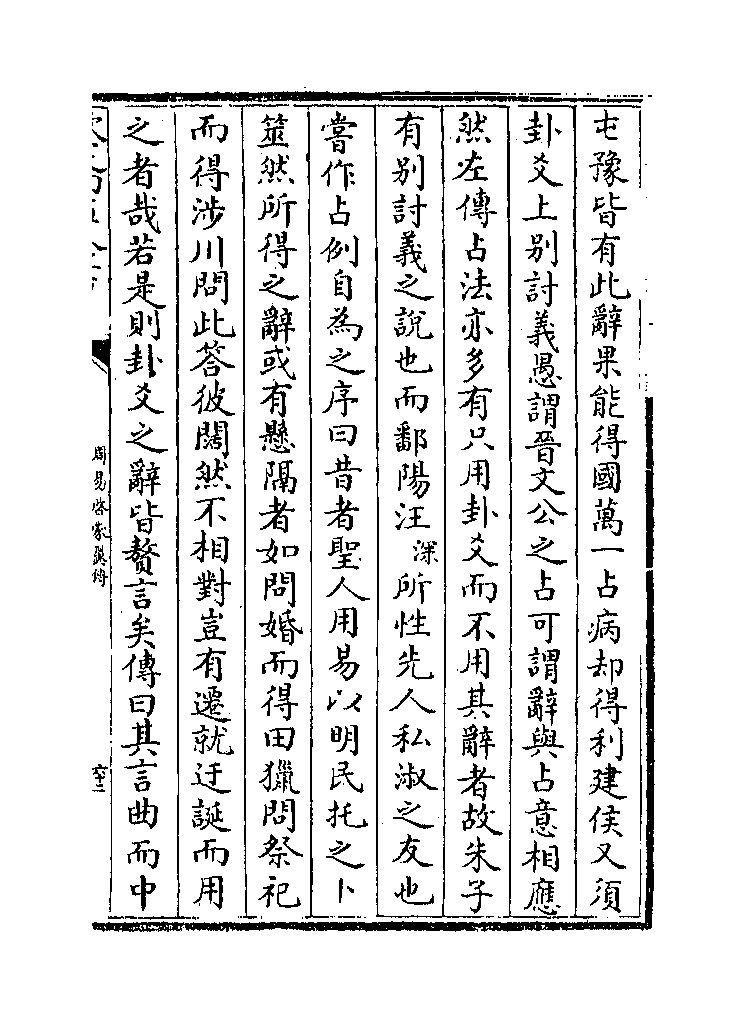 屯豫皆有此辭果能得國萬一占病却得利建侯又須
卦爻上别討義愚謂晉文公之占可謂辭與占意相應
然左傳占法亦多有只用卦爻而不用其辭者故朱子
有别討義之說也而鄱陽汪深所性先人私淑之友也
嘗作占例自為之序曰昔者聖人用易以明民托之卜
筮然所得之辭或有懸隔者如問婚而得田獵問祭祀
而得涉川問此答彼闊然不相對豈有遷就迂誕而用
之者哉若是則卦爻之辭皆贅言矣傳曰其言曲而中
周易啓蒙翼傳
六十二